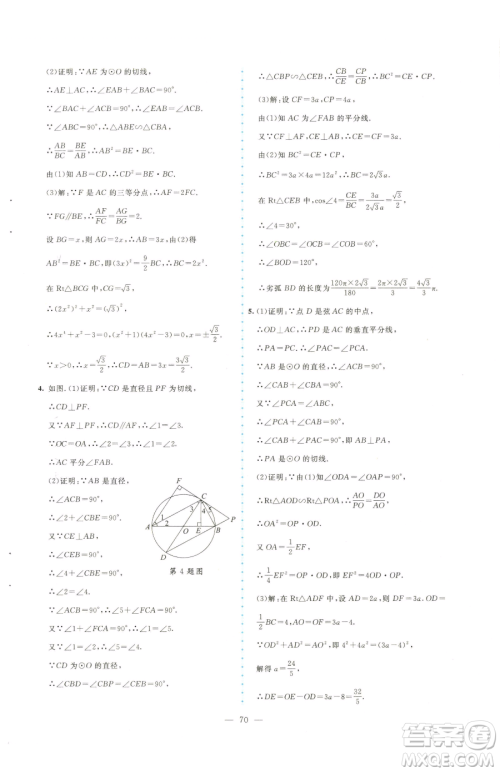 (2)证明:∵AE 为⊙O 的切线,
∴AE⊥AC,∴∠EAC=90°,
∴∠BAC+∠BAE=90°.
由(1)知∠ABC=90°,
∴∠BAC+∠C=90°,∴∠BAE=∠C.
又∵∠ABE=∠ABC=90°,
∴△BAE∽△BCA,
∴AB/BC=BE/AB,∴AB²=BE·BC.
(3)解:∵F 是 AC 的三等分点,
∵FG∥BE,∴AF/FC=AG/BG=2.
设 BG=x,则 AG=2x,∴AB=3x.
∵AB²=BE·BC,即(3x)²=9/2 BC,
∴BC=2x².
在 Rt△BCG 中,CG=√3,
∴(2x²)²+x²=(√3)²,
∴4x⁴+x²-3=(x²+1)(4x²-3)=0,∴x=±√3/2.
∵x>0,∴x=√3/2,∴AB=3x=3√3/2.
4. 如图.(1)证明:∵CD 是直径且 PF 为切线,
∴CD⊥PF.
又∵AF⊥PF,∴AF∥CD,
∴∠1=∠3.
∵OC=OA,∴∠2=∠3,∴∠1=∠2,
∴AC 平分∠FAB.
(2)证明:∵AB 是直径,
∴∠ACB=90°,
∴∠2+∠CBE=90°.
又∵CE⊥AB,
∴∠CEB=90°,
∴∠CBE+∠5=90°,
∴∠2=∠5.
∵∠ACB=90°,
又∵∠1=∠2,∴∠1=∠5.
∵CD 为⊙O 直径,
∴∠CBD=∠CEB=∠CBP=90°,
第 4 题图
∴△CBP∽△CEB,∴CB/CE=CP/CB,
∴BC²=CE·CP.
(3)解:设 CF=3a,CP=4a,
由(1)知 AC 为∠FAB 的平分线.
又∵CF⊥AF,CE⊥AB,
∴CF=CE=3a.
由(2)知 BC²=CE·CP,
∴BC²=12a²,∴BC=2√3a.
在 Rt△CEB 中,cos∠4=CE/BC=3a/2√3a=√3/2,
∴∠4=30°,
∴∠OBC=∠OCB=60°,
∴∠BOD=120°,
∴劣弧 BD 的长度为 120π×2√3/180=2π×2√3/3=4√3/3 π.
5. (1)证明:∵点 D 是弦 AC 的中点,
∴OD⊥AC,∴PO 是 AC 的垂直平分线,
∴PA=PC,∴∠PAC=∠PCA.
∵AB 是⊙O 的直径,∴∠ACB=90°,
∴∠CAB+∠CBA=90°.
又∵∠PCA=∠ABC,∴∠PAC=∠ABC,
∴∠CAB+∠PAC=90°,∴AB⊥PA,
∴PA 是⊙O 的切线.
(2)证明:由(1)知∠ODA=∠OAP=90°,
∴Rt△AOD∽Rt△POA,∴AO/PO=DO/AO,
∴OA²=OP·OD.
又∵OA=1/2 EF,
∴1/4 EF²=OP·OD,即 EF²=4OP·OD.
(3)解:在 Rt△ADF 中,设 AD=2a,则 DF=3a,OD=
1/2 BC=4,AO=OF=3a-4.
∵OD²+AD²=AO²,即 4²+4a²=(3a-4)²,
解得 a=24/5,
∴DE=OE-OD=3a-8=32/5.
70